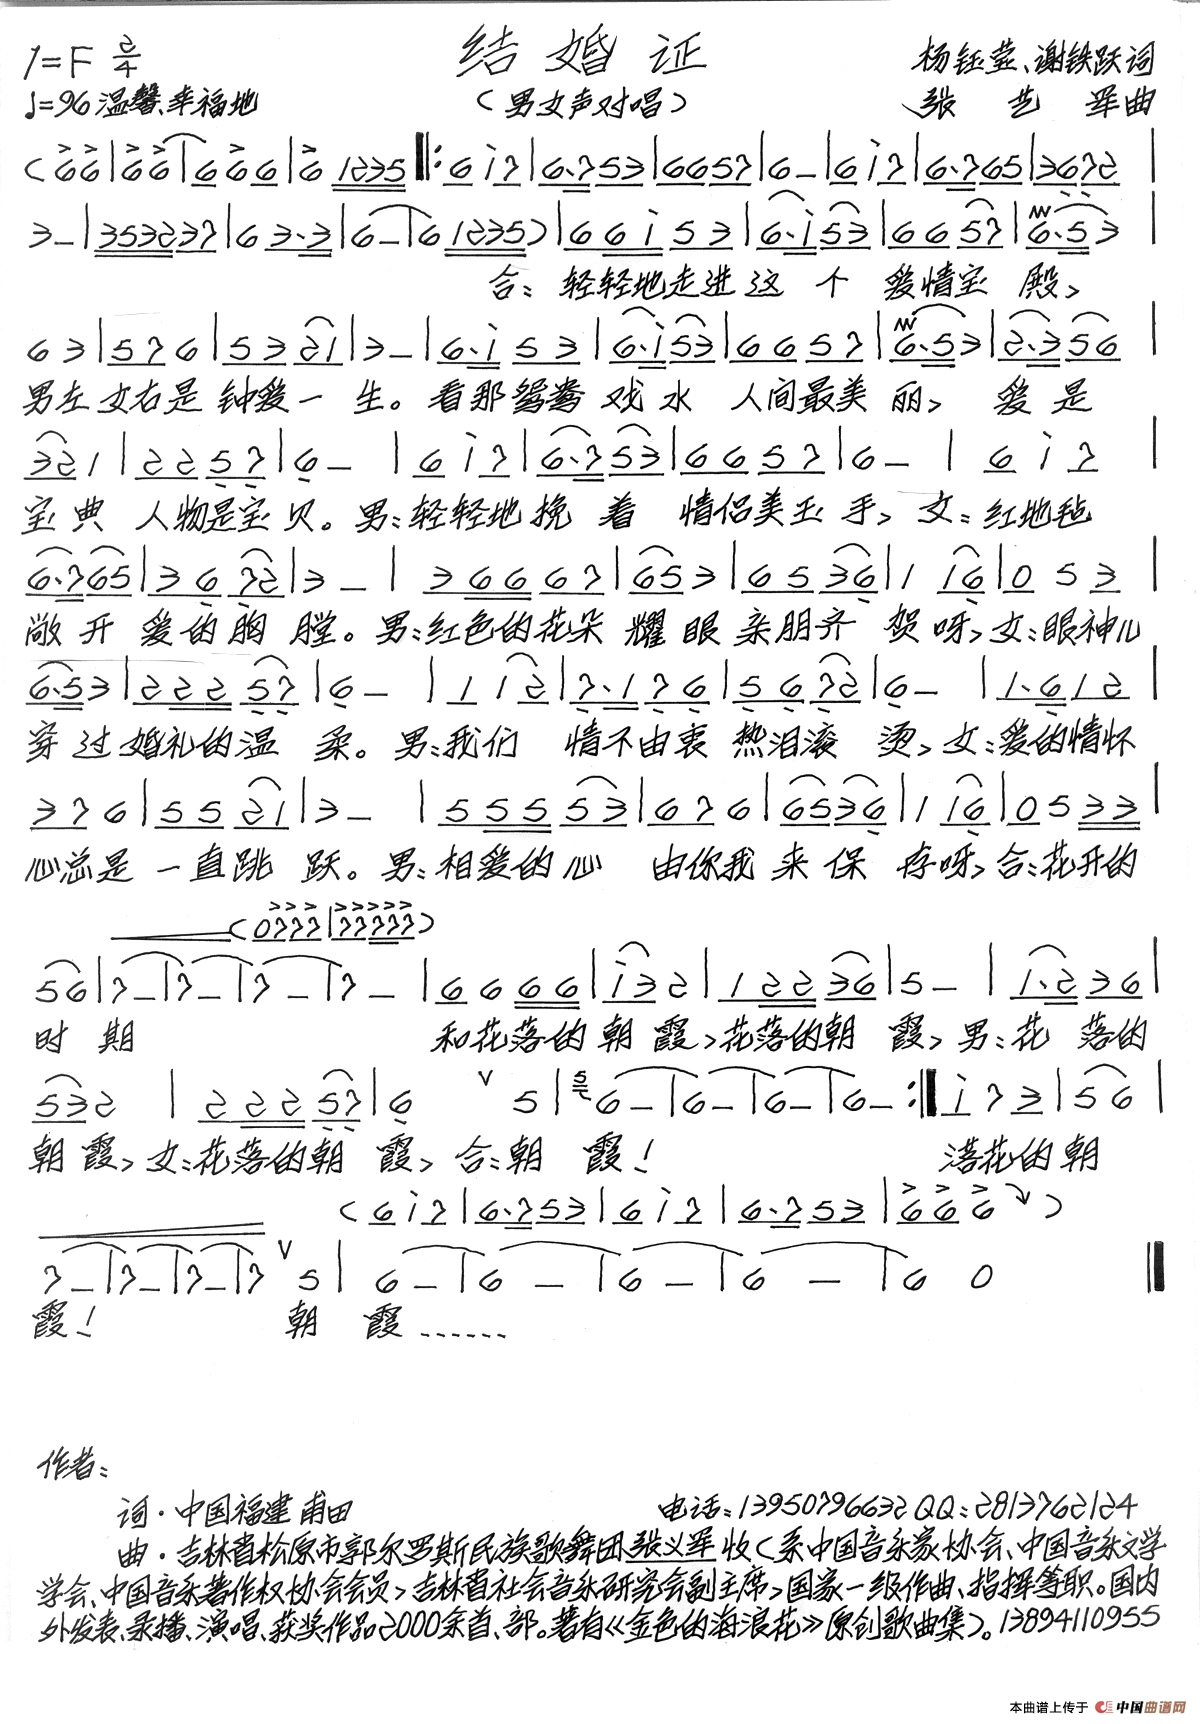 结婚证
1=F 2/4
杨钰莹、谢铁跃词
♩=96 温馨、幸福地
(男女声对唱)
张艺军曲
(6 6|6 6|6 6 6|6 1235‖:6 i 7|6·7 5 3|6 6 5 7|6 –|6 i 7|6·7 6 5|3 6 7 2|
3 –|3 5 3 2 3 7|6 3·3|6 –|6 1235)|6 6 i 5 3|6·i 5 3|6 6 5 7|6·5 3|
合:轻轻地走进这个爱情宝殿,
6 3|5 7 6|5 3 2 1|3 –|6·i 5 3|6·i 5 3|6 6 5 7|6·5 3|2·3 5 6|
男左女右是钟爱一生。看那鸳鸯戏水人间最美丽,爱是
3 2 1|2 2 5 7|6 –|6 i 7|6·7 5 3|6 6 5 7|6 –|6 i 7|
宝典人物是宝贝。男:轻轻地挽着情侣美玉手,女:红地毡
6·7 6 5|3 6 7 2|3 –|3 6 6 6 7|6 5 3|6 5 3 6|1 1 6|0 5 3|
敞开爱的胸膛。男:红色的花朵耀眼亲朋齐贺呀,女:眼神儿
6·5 3|2 2 2 5 7|6 –|1 1 2|7·1 7 6|5 6 7 2|6 –|1·6 1 2|
穿过婚礼的温柔。男:我们情不由衷热泪滚烫,女:爱的情怀
3 7 6|5 5 2 1|3 –|5 5 5 5 3|6 7 6|6 5 3 6|1 1 6|0 5 3 3|
心总是一直跳跃。男:相爱的心由你我来保存呀,合:花开的
(0 7 7 7|7 7 7 7 7)
5 6|7 –|7 –|7 –|7 –|6 6 6 6|i 3 2|1 2 2 3 6|5 –|1·2 3 6|
时期和花落的朝霞,花落的朝霞,男:花落的
5 3 2|2 2 2 5 7|6 ∨ 5|6 –|6 –|6 –|6 – :‖i 7 3|5 6|
朝霞,女:花落的朝霞,合:朝霞! 落花的朝
(6 i 7|6·7 5 3|6 i 7|6·7 5 3|6 6 6)
7 –|7 –|7 –|7 ∨ 5|6 –|6 –|6 –|6 –|6 0‖
霞! 朝霞……
作者:
词·中国福建甫田 电话:13950796632 QQ:2813762124
曲·吉林省松原市郭尔罗斯民族歌舞团张义军收(系中国音乐家协会、中国音乐文学
学会、中国音乐著作权协会会员,吉林省社会音乐研究会副主席,国家一级作曲、指挥等职。国内
外发表、录播、演唱、获奖作品2000余首、部。著有《金色的海浪花》原创歌曲集)。13894110955
本曲谱上传于 中国曲谱网